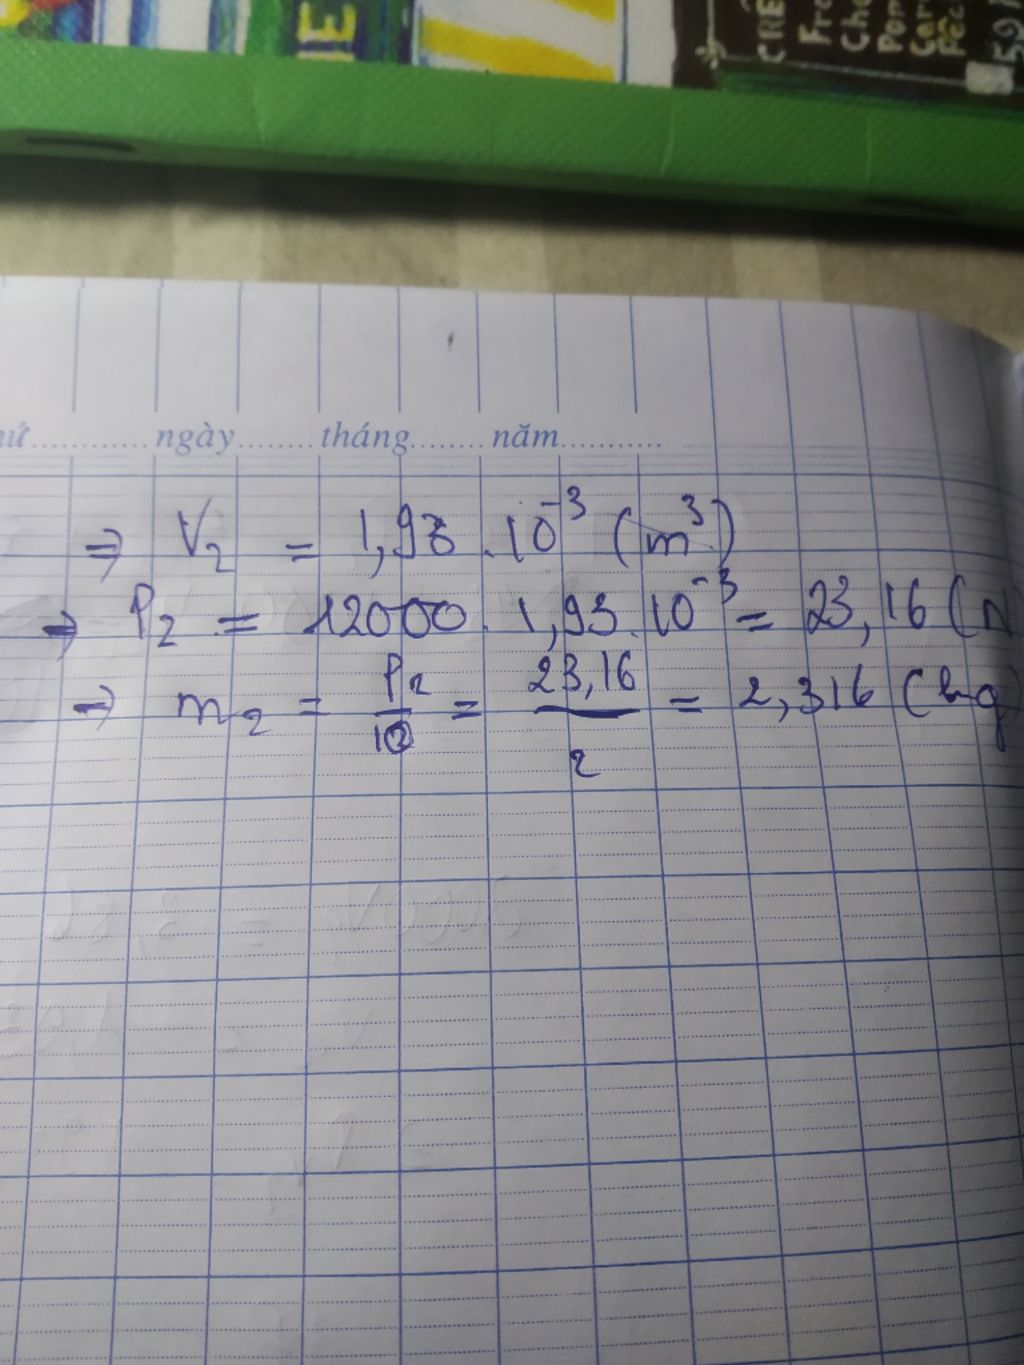 CRÊ
Fro
Cho
Pom
Car
Féc
59
IE
ngày tháng năm
=> V₂ = 1,93 . 10⁻³ (m³)
=> P₂ = 12000 . 1,93 . 10⁻³ = 23,16 (N
=> m₂ = P₂/10 = 23,16/2 = 2,316 (kg)